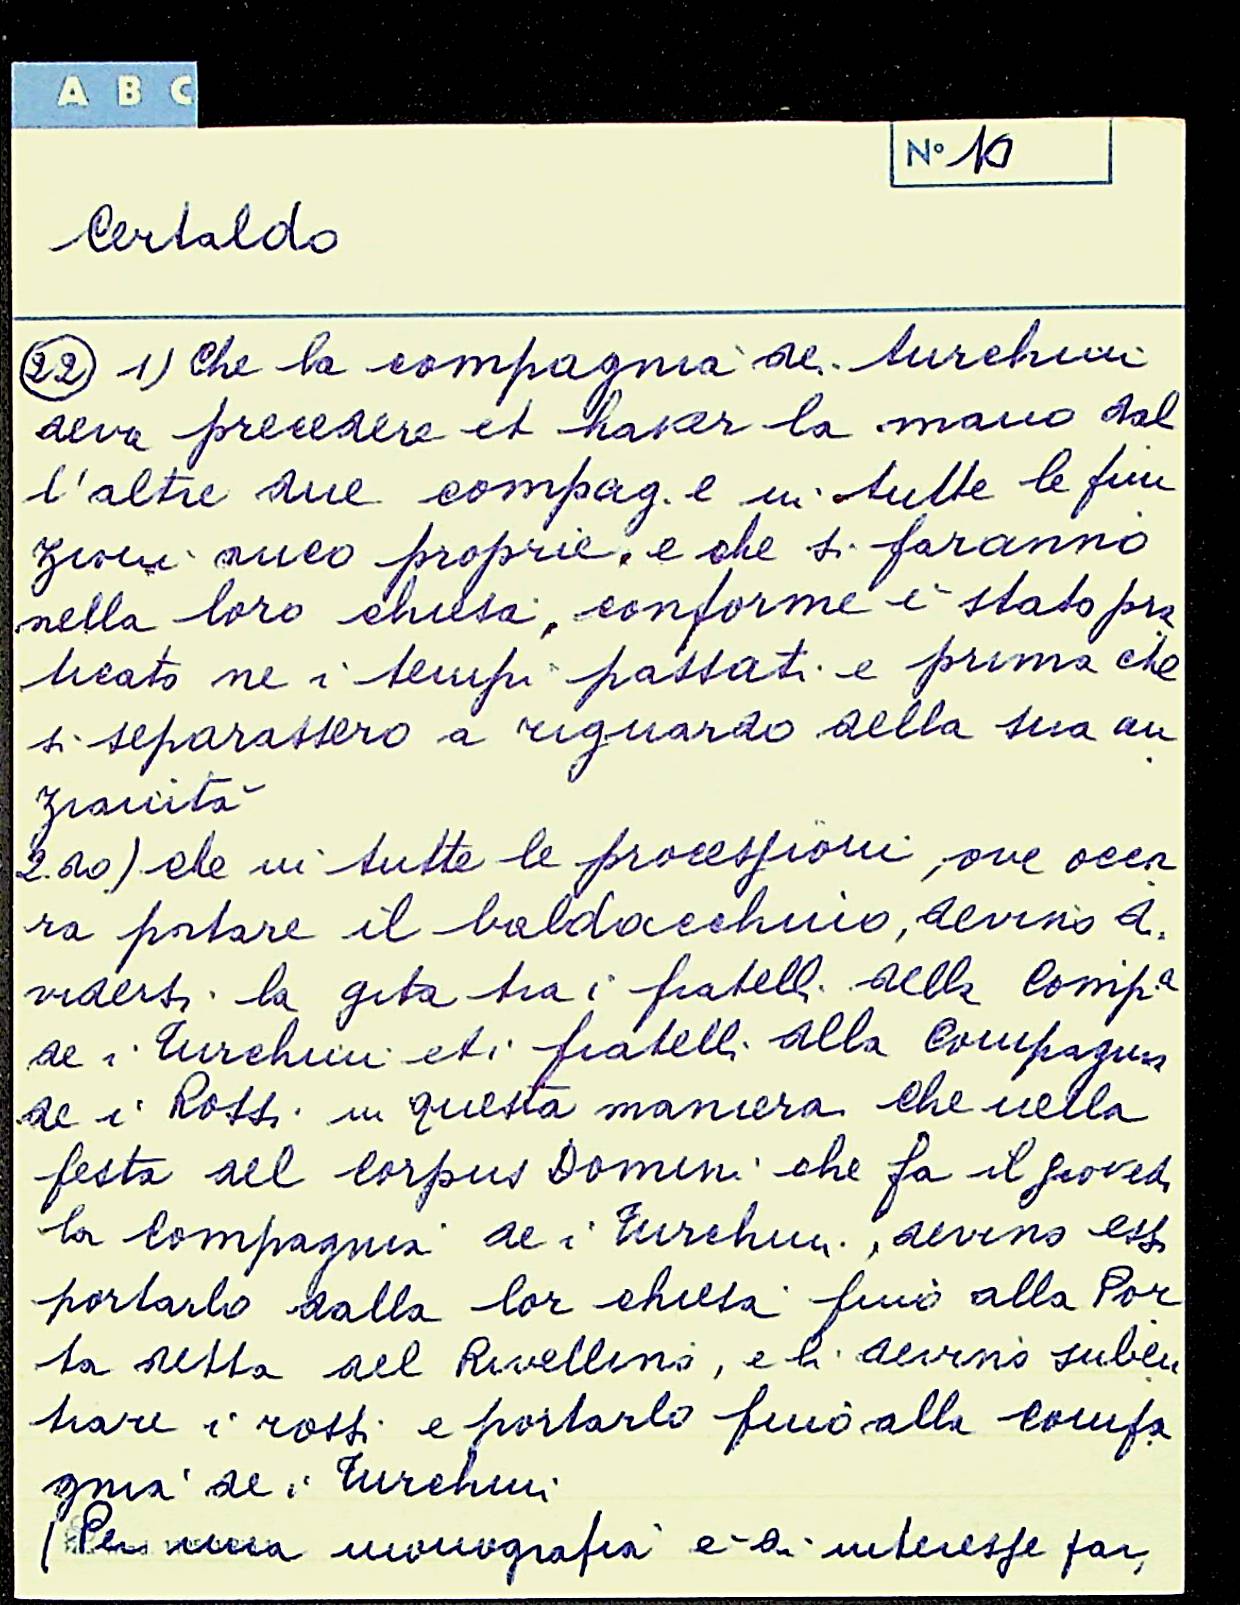 A B C
N° 10
Certaldo
22 1) Che la compagnia dei turchini
deva precedere et haver la mano dal
l'altre due compag. e in tutte le fun
zioni anco proprie, e che si faranno
nella loro chiesa, conforme è stato pra
ticato ne i tempi passati e prima che
si separassero a riguardo della sua an
zianità
2.do) che in tutte le processioni, ove occor
ra portare il baldacchino, devino di
vidersi la gita tra i fratelli della Comp.a
de i Turchini et i fratelli della Compagnia
de i Rossi in questa maniera che nella
festa del Corpus Domini che fa il giovedì
la Compagnia de i Turchini, devino essi
portarlo dalla lor chiesa fino alla Por
ta detta del Rivellino, e li devino suben
trare i rossi e portarlo fino alla compa
gnia de i Turchini
(Per una monografia è di interesse